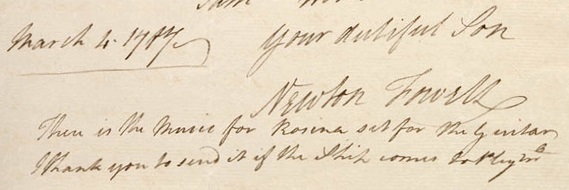 March 4. 1787
Your dutiful Son
Newton Fowell
There is the Music for Rosina set for the Guitar
I thank you to send it if the Ship comes to Plymth